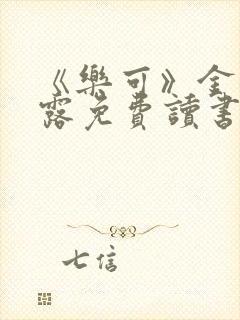 《樂可》金
露免費讀書
七信